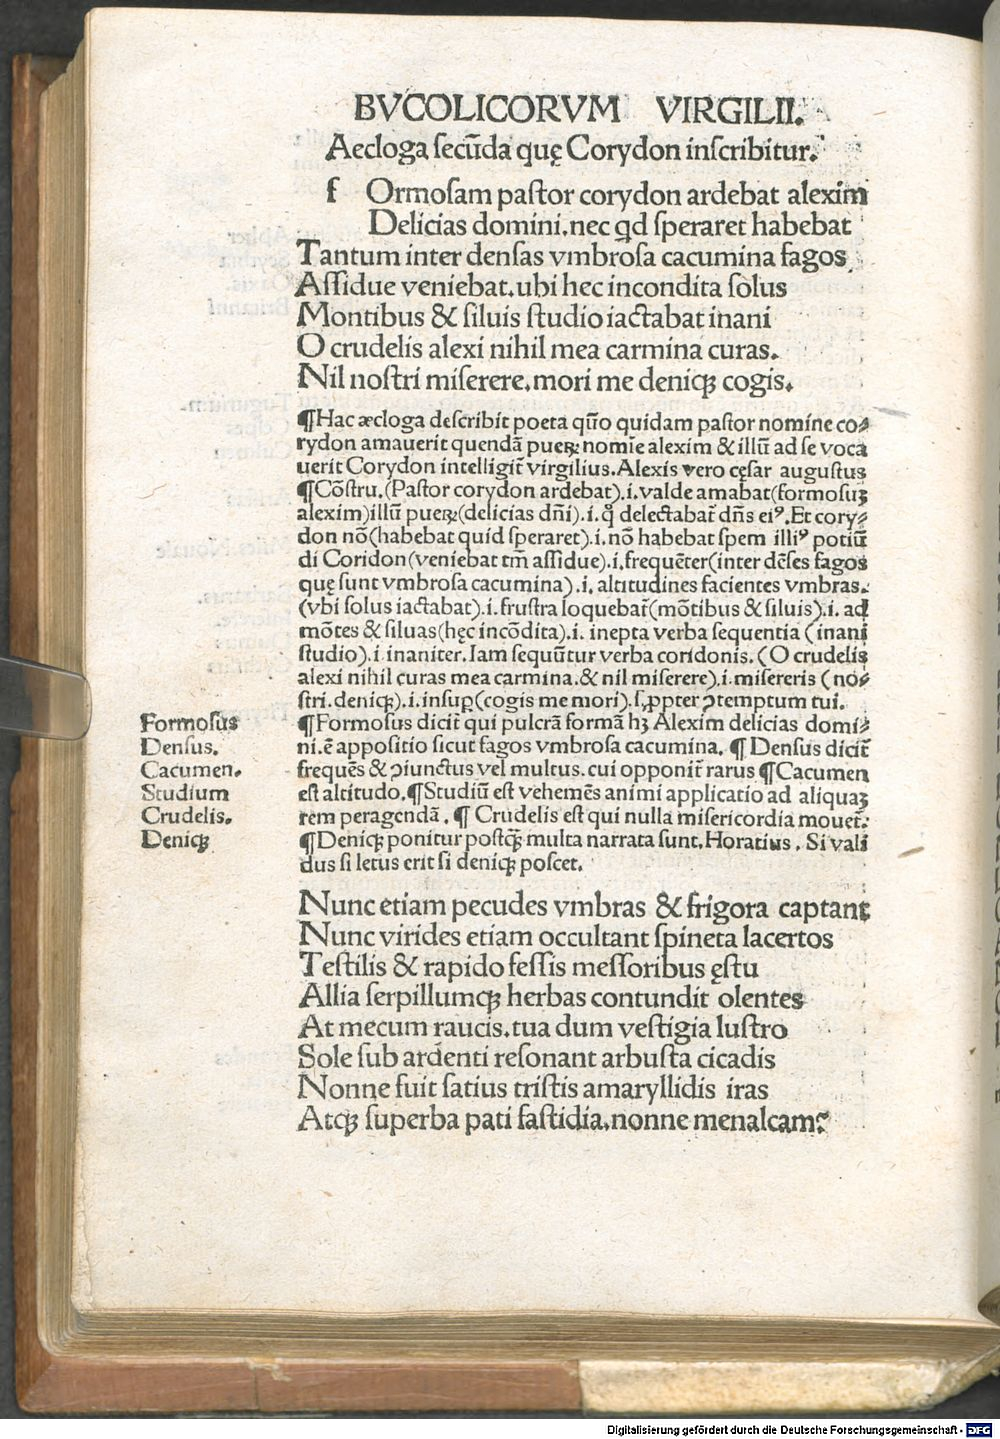 BVCOLICORVM VIRGILII.
Aecloga secūda quę Corydon inscribitur.
f Ormosam pastor corydon ardebat alexim
Delicias domini.nec qd speraret habebat
Tantum inter densas vmbrosa cacumina fagos
Assidue veniebat.ubi hec incondita solus
Montibus & siluis studio iactabat inani
O crudelis alexi nihil mea carmina curas.
Nil nostri miserere.mori me deniqꝫ cogis.
¶Hac æcloga describit poeta quo quidam pastor nomine co⸗
rydon amauerit quendā pueꝝ nomīe alexim & illū ad se voca
uerit Corydon intelligit̃ virgilius.Alexis vero cęsar augustus
¶Cōstru.(Pastor corydon ardebat).i.valde amabat(formosuꝫ
alexim)illū pueꝝ(delicias dñi).i.q̃ delectabat̃ dñs eiꝰ.Et cory⸗
don nō(habebat quid speraret).i.nō habebat spem illiꝰ potiū
di Coridon(veniebat tm̃ assidue).i.frequēter(inter dēses fagos
quę sunt vmbrosa cacumina).i.altitudines facientes vmbras.
(vbi solus iactabat).i.frustra loquebat̃(mōtibus & siluis).i.ad
mōtes & siluas(hęc incōdita).i.inepta verba sequentia(inani
studio).i inaniter.Iam sequūtur verba coridonis.(O crudelis
alexi nihil curas mea carmina.& nil miserere).i.misereris(no⸗
stri.deniqꝫ).i.insuꝑ(cogis me mori).s.ꝓpter ↄtemptum tui.
Formosus ¶Formosus dicit̃ qui pulcrā formā hꝫ Alexim delicias domi⸗
Densus. ni.ē appositio sicut fagos vmbrosa cacumina. ¶Densus dicit̃
Cacumen. frequēs & ↄiunctus vel multus.cui opponit̃ rarus ¶Cacumen
Studium est altitudo.¶Studiū est vehemēs animi applicatio ad aliquaꝫ
Crudelis. rem peragendā. ¶Crudelis est qui nulla misericordia mouet̃.
Deniqꝫ ¶Deniqꝫ ponitur postqꝫ̃ multa narrata sunt.Horatius. Si vali
dus si letus erit si deniqꝫ poscet.
Nunc etiam pecudes vmbras & frigora captant
Nunc virides etiam occultant spineta lacertos
Testilis & rapido fessis messoribus ęstu
Allia serpillumqꝫ herbas contundit olentes
At mecum raucis.tua dum vestigia lustro
Sole sub ardenti resonant arbusta cicadis
Nonne fuit satius tristis amaryllidis iras
Atqꝫ superba pati fastidia.nonne menalcam?
Digitalisierung gefördert durch die Deutsche Forschungsgemeinschaft - DFG